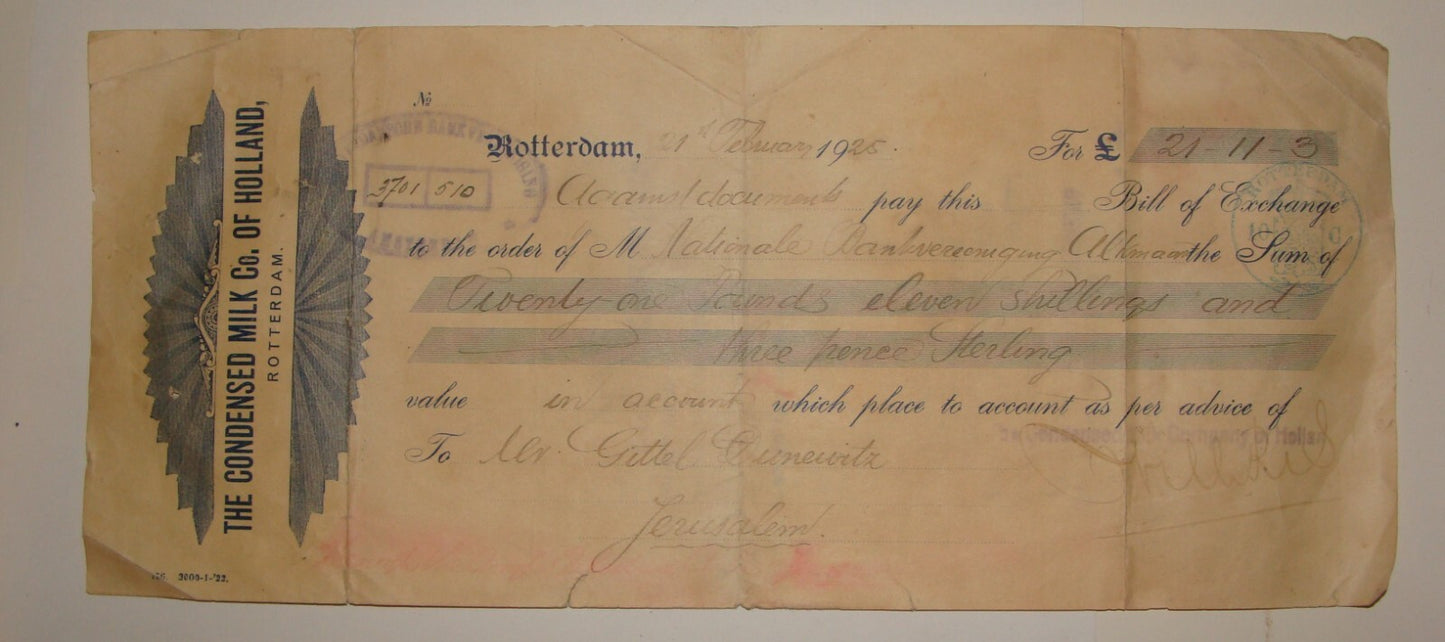 THE CONDENSED MILK Co. OF HOLLAND,
ROTTERDAM.
No
Rotterdam, 21st February 1925. For £ 21-11-3
3701 510
Against documents pay this Bill of Exchange
to the order of M Nationale Bankvereeniging Alkmaar the Sum of
Twenty-one Pounds eleven shillings and
three pence Sterling
value in account which place to account as per advice of
To Mr. Gittel
Jerusalem.
ROTTERDAM
2000-1-'22.